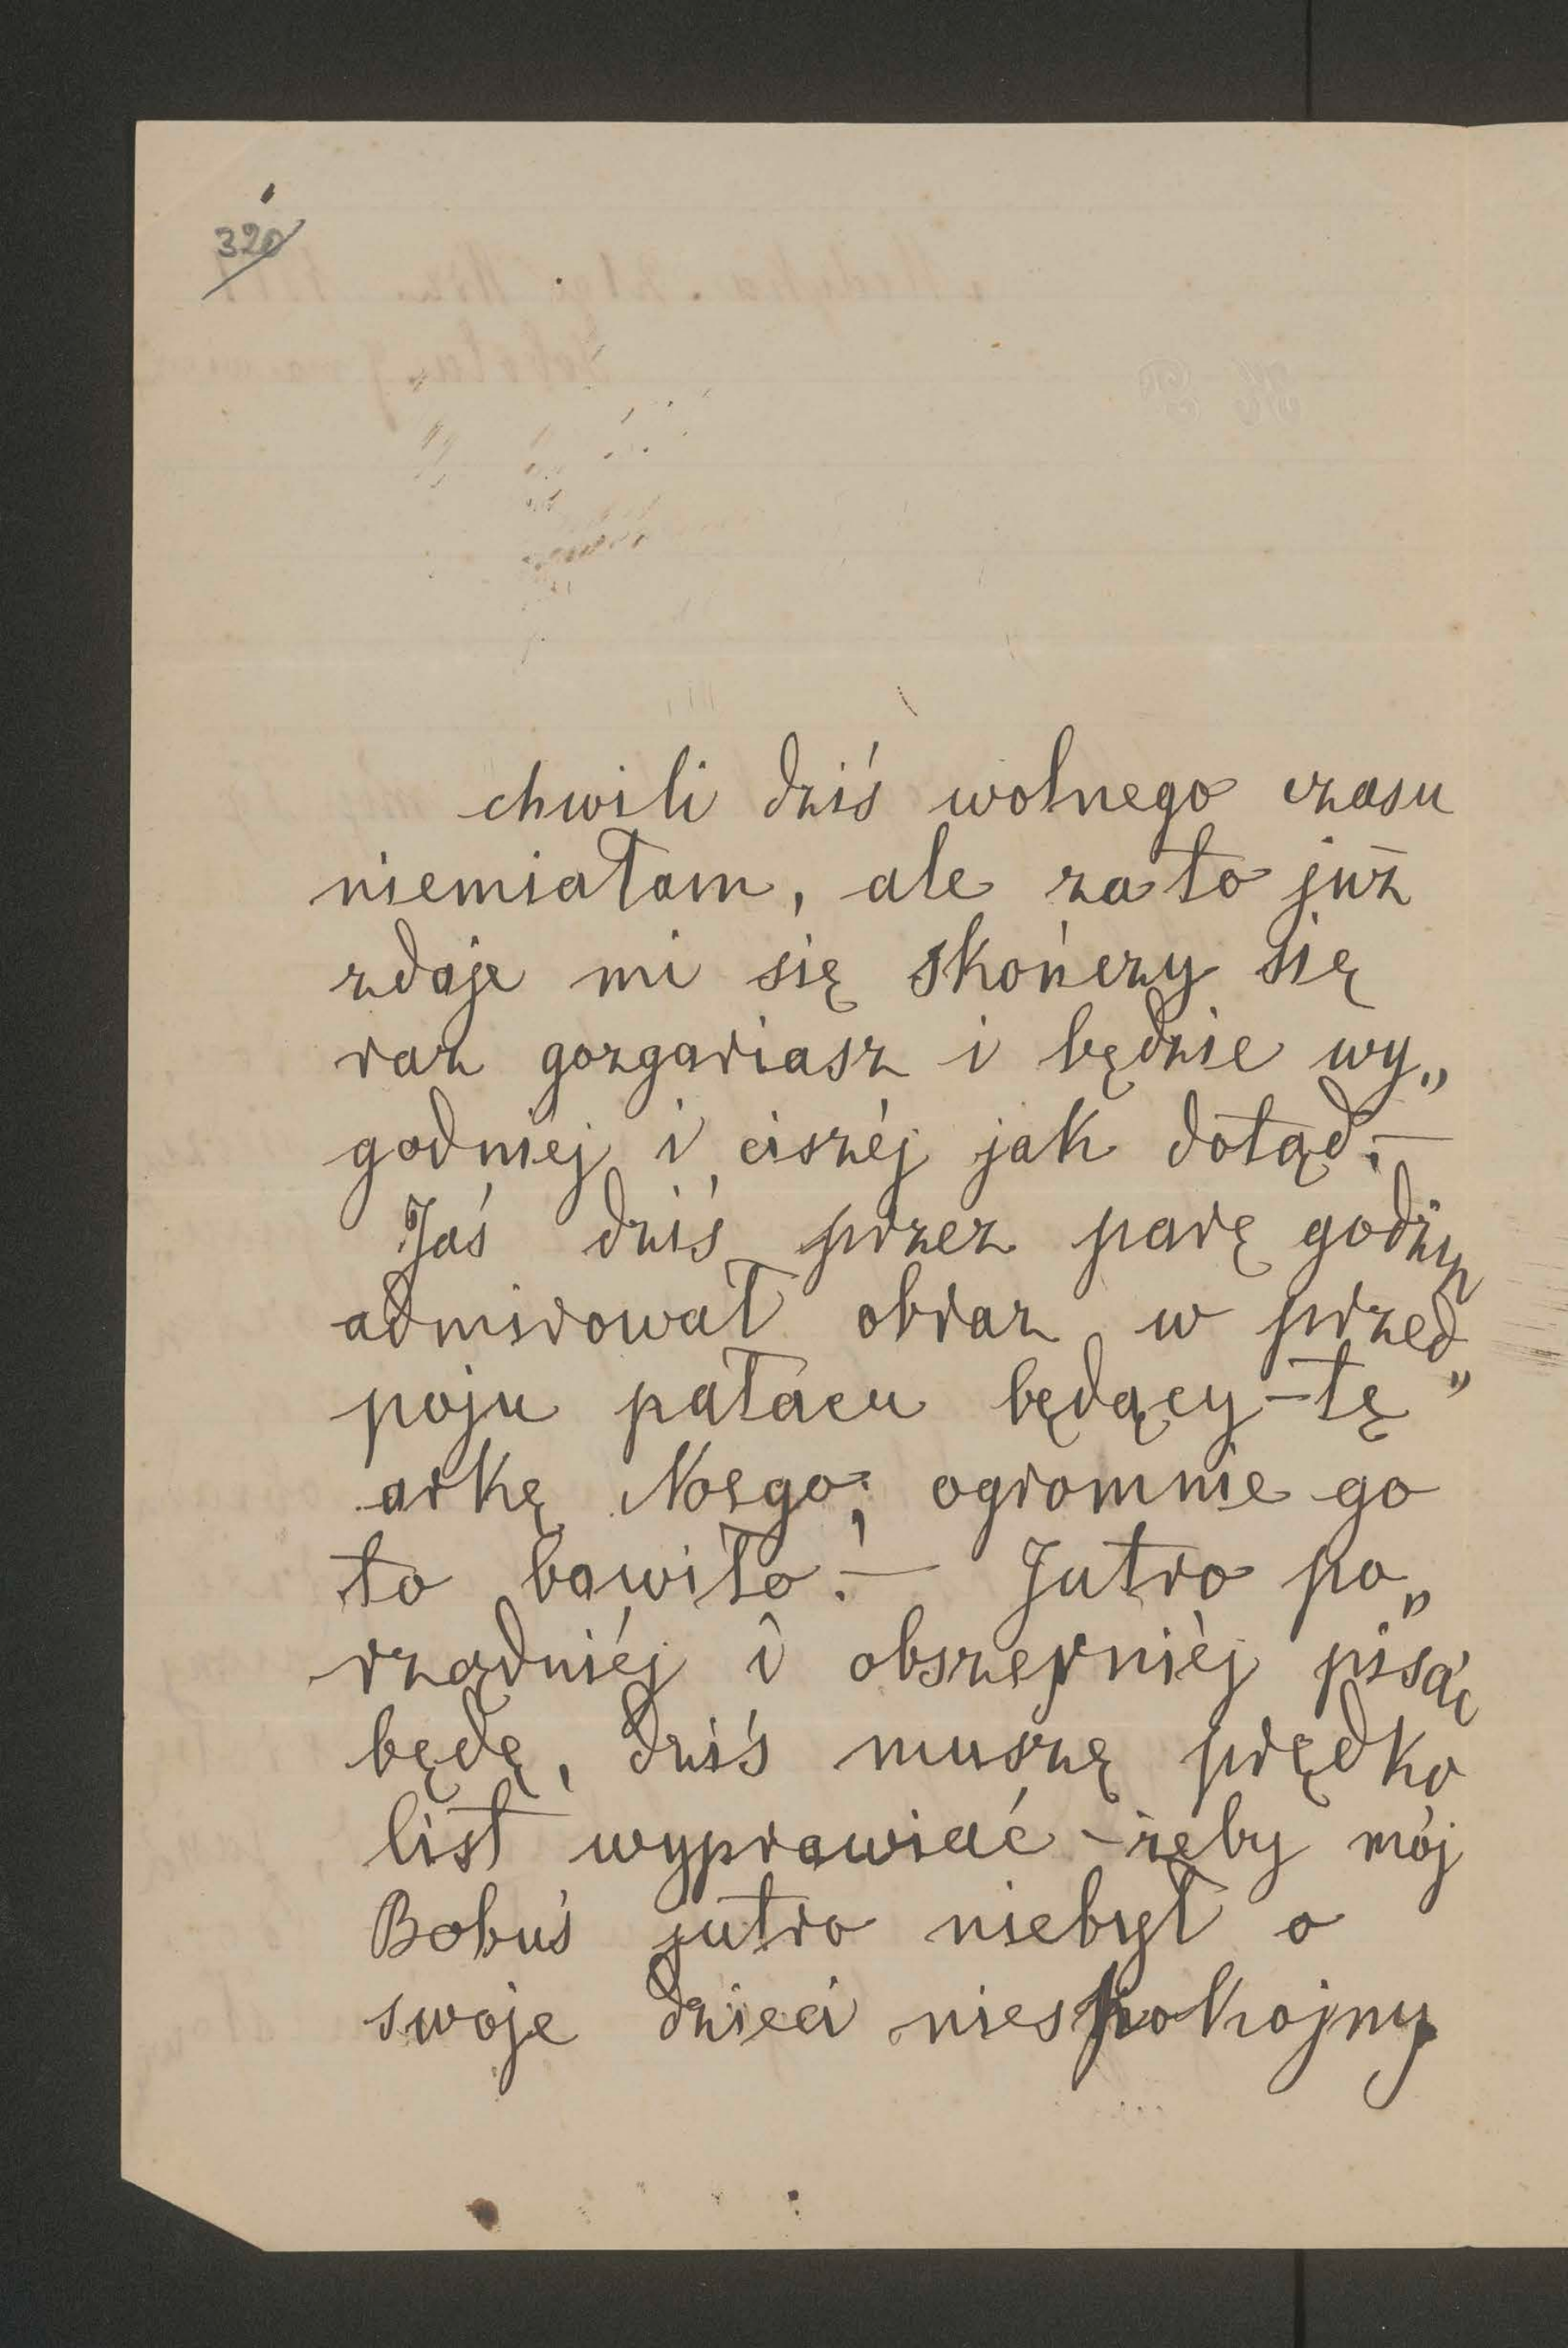 320
chwili dziś wolnego czasu
niemiałam, ale za to już
zdaje mi się skończy się
raz gozgariasz i będzie wy„
godniej i ciszéj jak dotąd. —
Jaś dziś przez parę godzin
admirował obraz w przed„
poju pałacu będący – tę
arkę Noego; ogromnie go
to bawiło. — Jutro po„
rządniéj i obszerniéj pisać
będę, dziś muszę prędko
list wyprawiać – żeby mój
Bobuś jutro niebył o
swoje dzieci niespokojny.